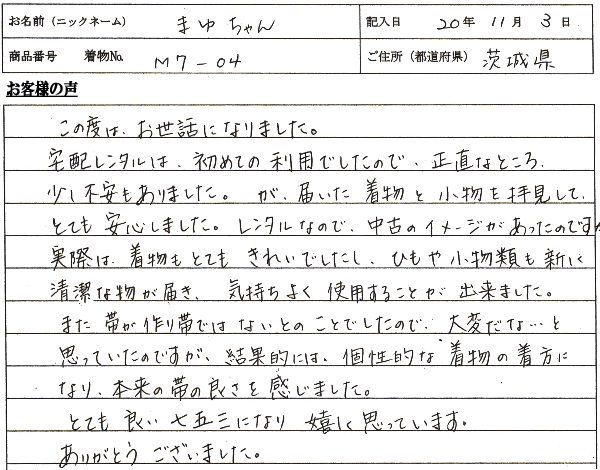 お名前（ニックネーム） まゆちゃん 記入日 20年 11月 3日
商品番号 着物No. M7-04 ご住所（都道府県） 茨城県
お客様の声
この度は、お世話になりました。
宅配レンタルは、初めての利用でしたので、正直なところ、
少し不安もありました。が、届いた着物と小物を拝見して、
とても安心しました。レンタルなので、中古のイメージがあったのですが
実際は、着物もとてもきれいでしたし、ひもや小物類も新しく
清潔な物が届き、気持ちよく使用することが出来ました。
また帯が作り帯ではないとのことでしたので、大変だな…と
思っていたのですが、結果的には、個性的な着物の着方に
なり、本来の帯の良さを感じました。
とても良い七五三になり嬉しく思っています。
ありがとうございました。